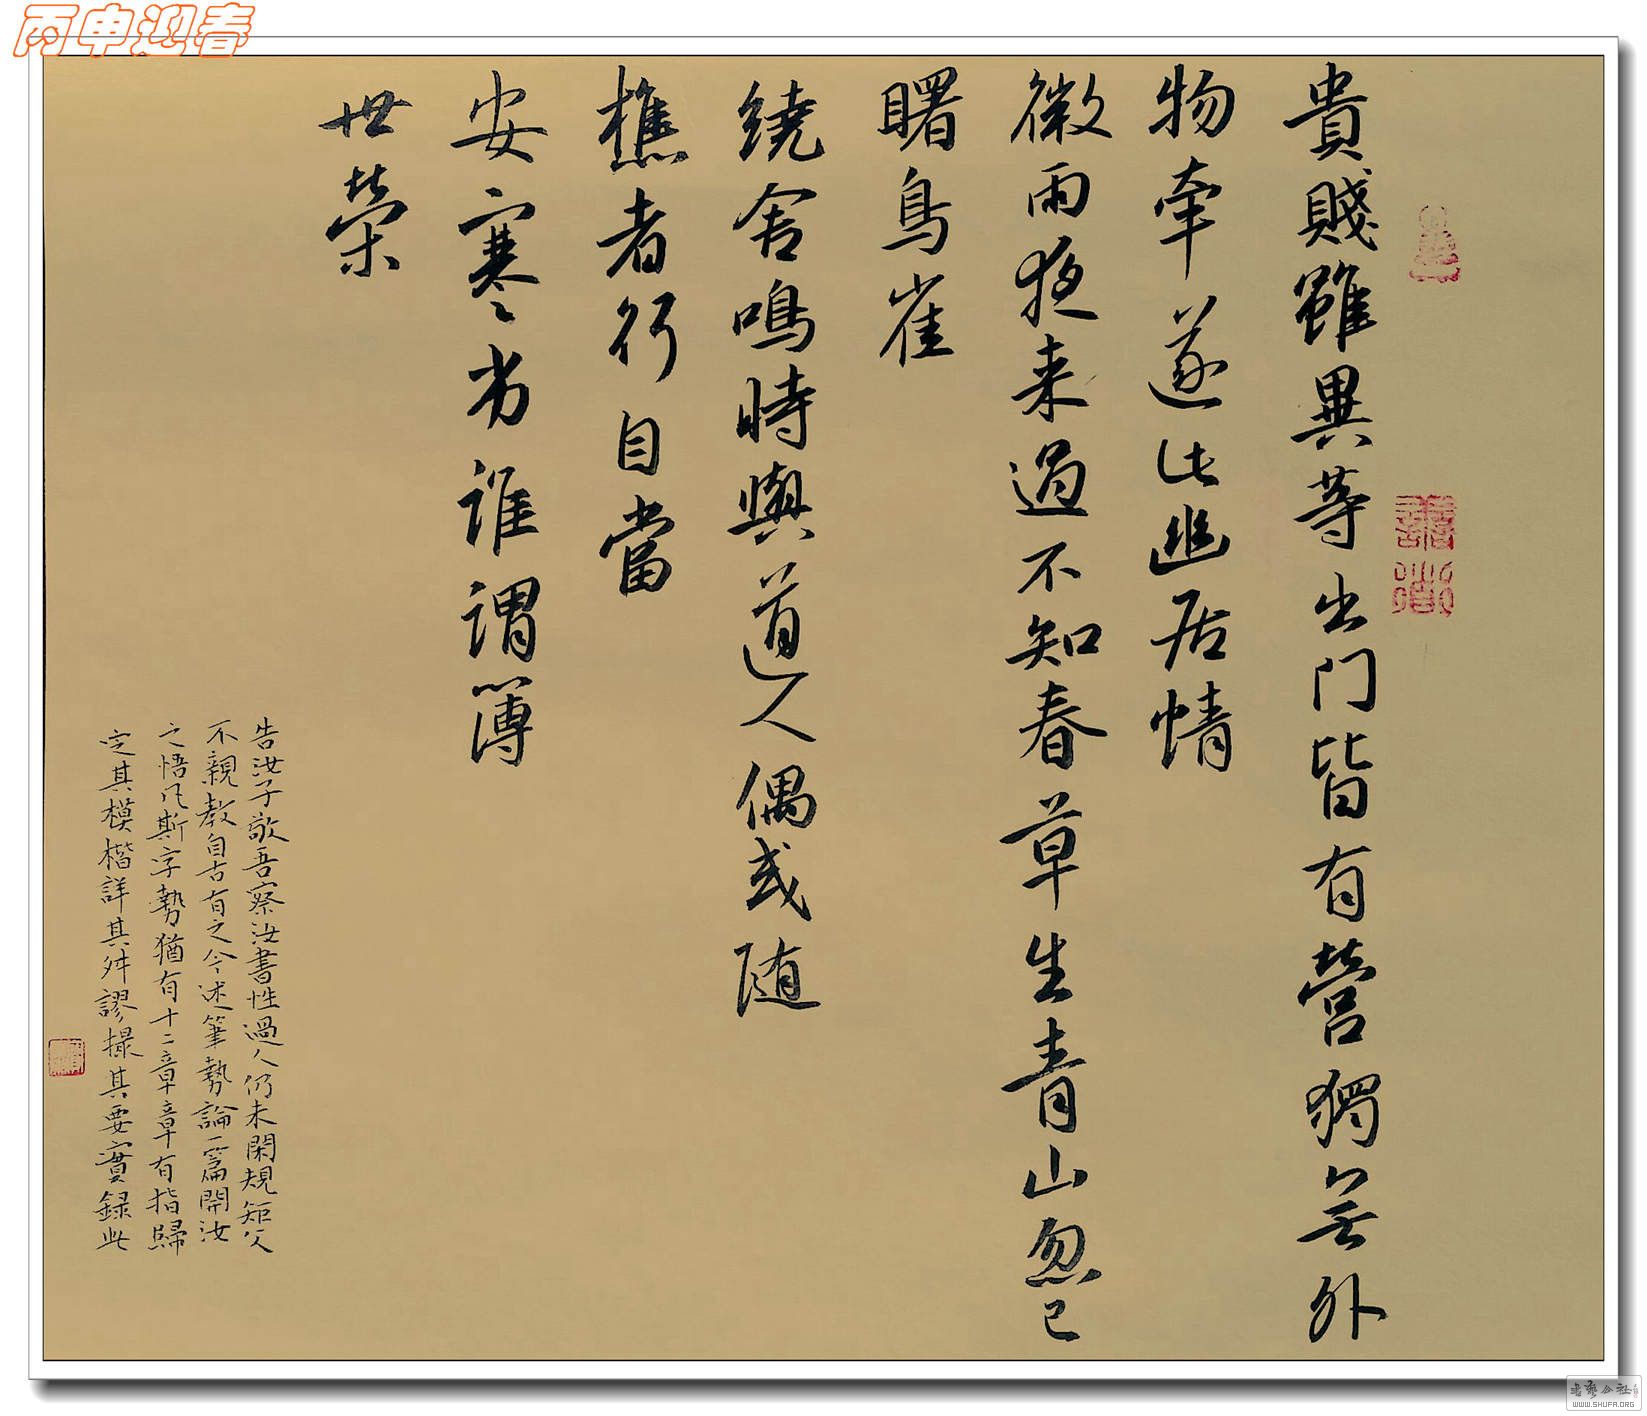 丙申迎春
貴賤雖異等出門皆有營獨無外
物牽遂此幽居情
微雨夜來過不知春草生青山忽已
曙鳥雀
繞舍鳴時與道人偶或随
樵者行自當
安寒劣誰謂薄
世榮
告汝子敬吾察汝書性過人仍未閑規矩父
不親教自古有之今述筆勢論一篇開汝
之悟凡斯字勢猶有十二章章有指歸
定其模楷詳其舛謬撮其要實録此
书艺公社
WWW.SHUFA.ORG